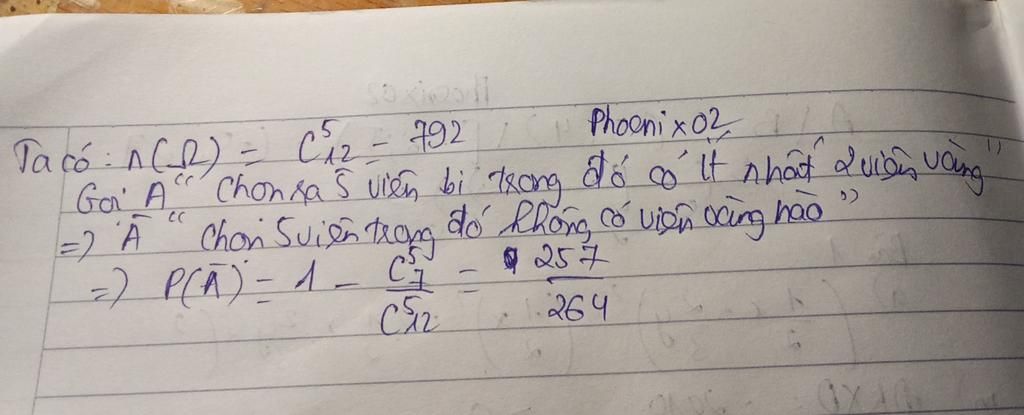 Phoenix02
Ta có: n(Ω) = C⁵₁₂ = 792
Gọi A " Chọn ra 5 viên bi trong đó có ít nhất 2 viên vàng "
=> Ā " Chọn 5 viên trong đó không có viên vàng nào "
=> P(Ā) = 1 - C⁵₇ / C⁵₁₂ = 257 / 264